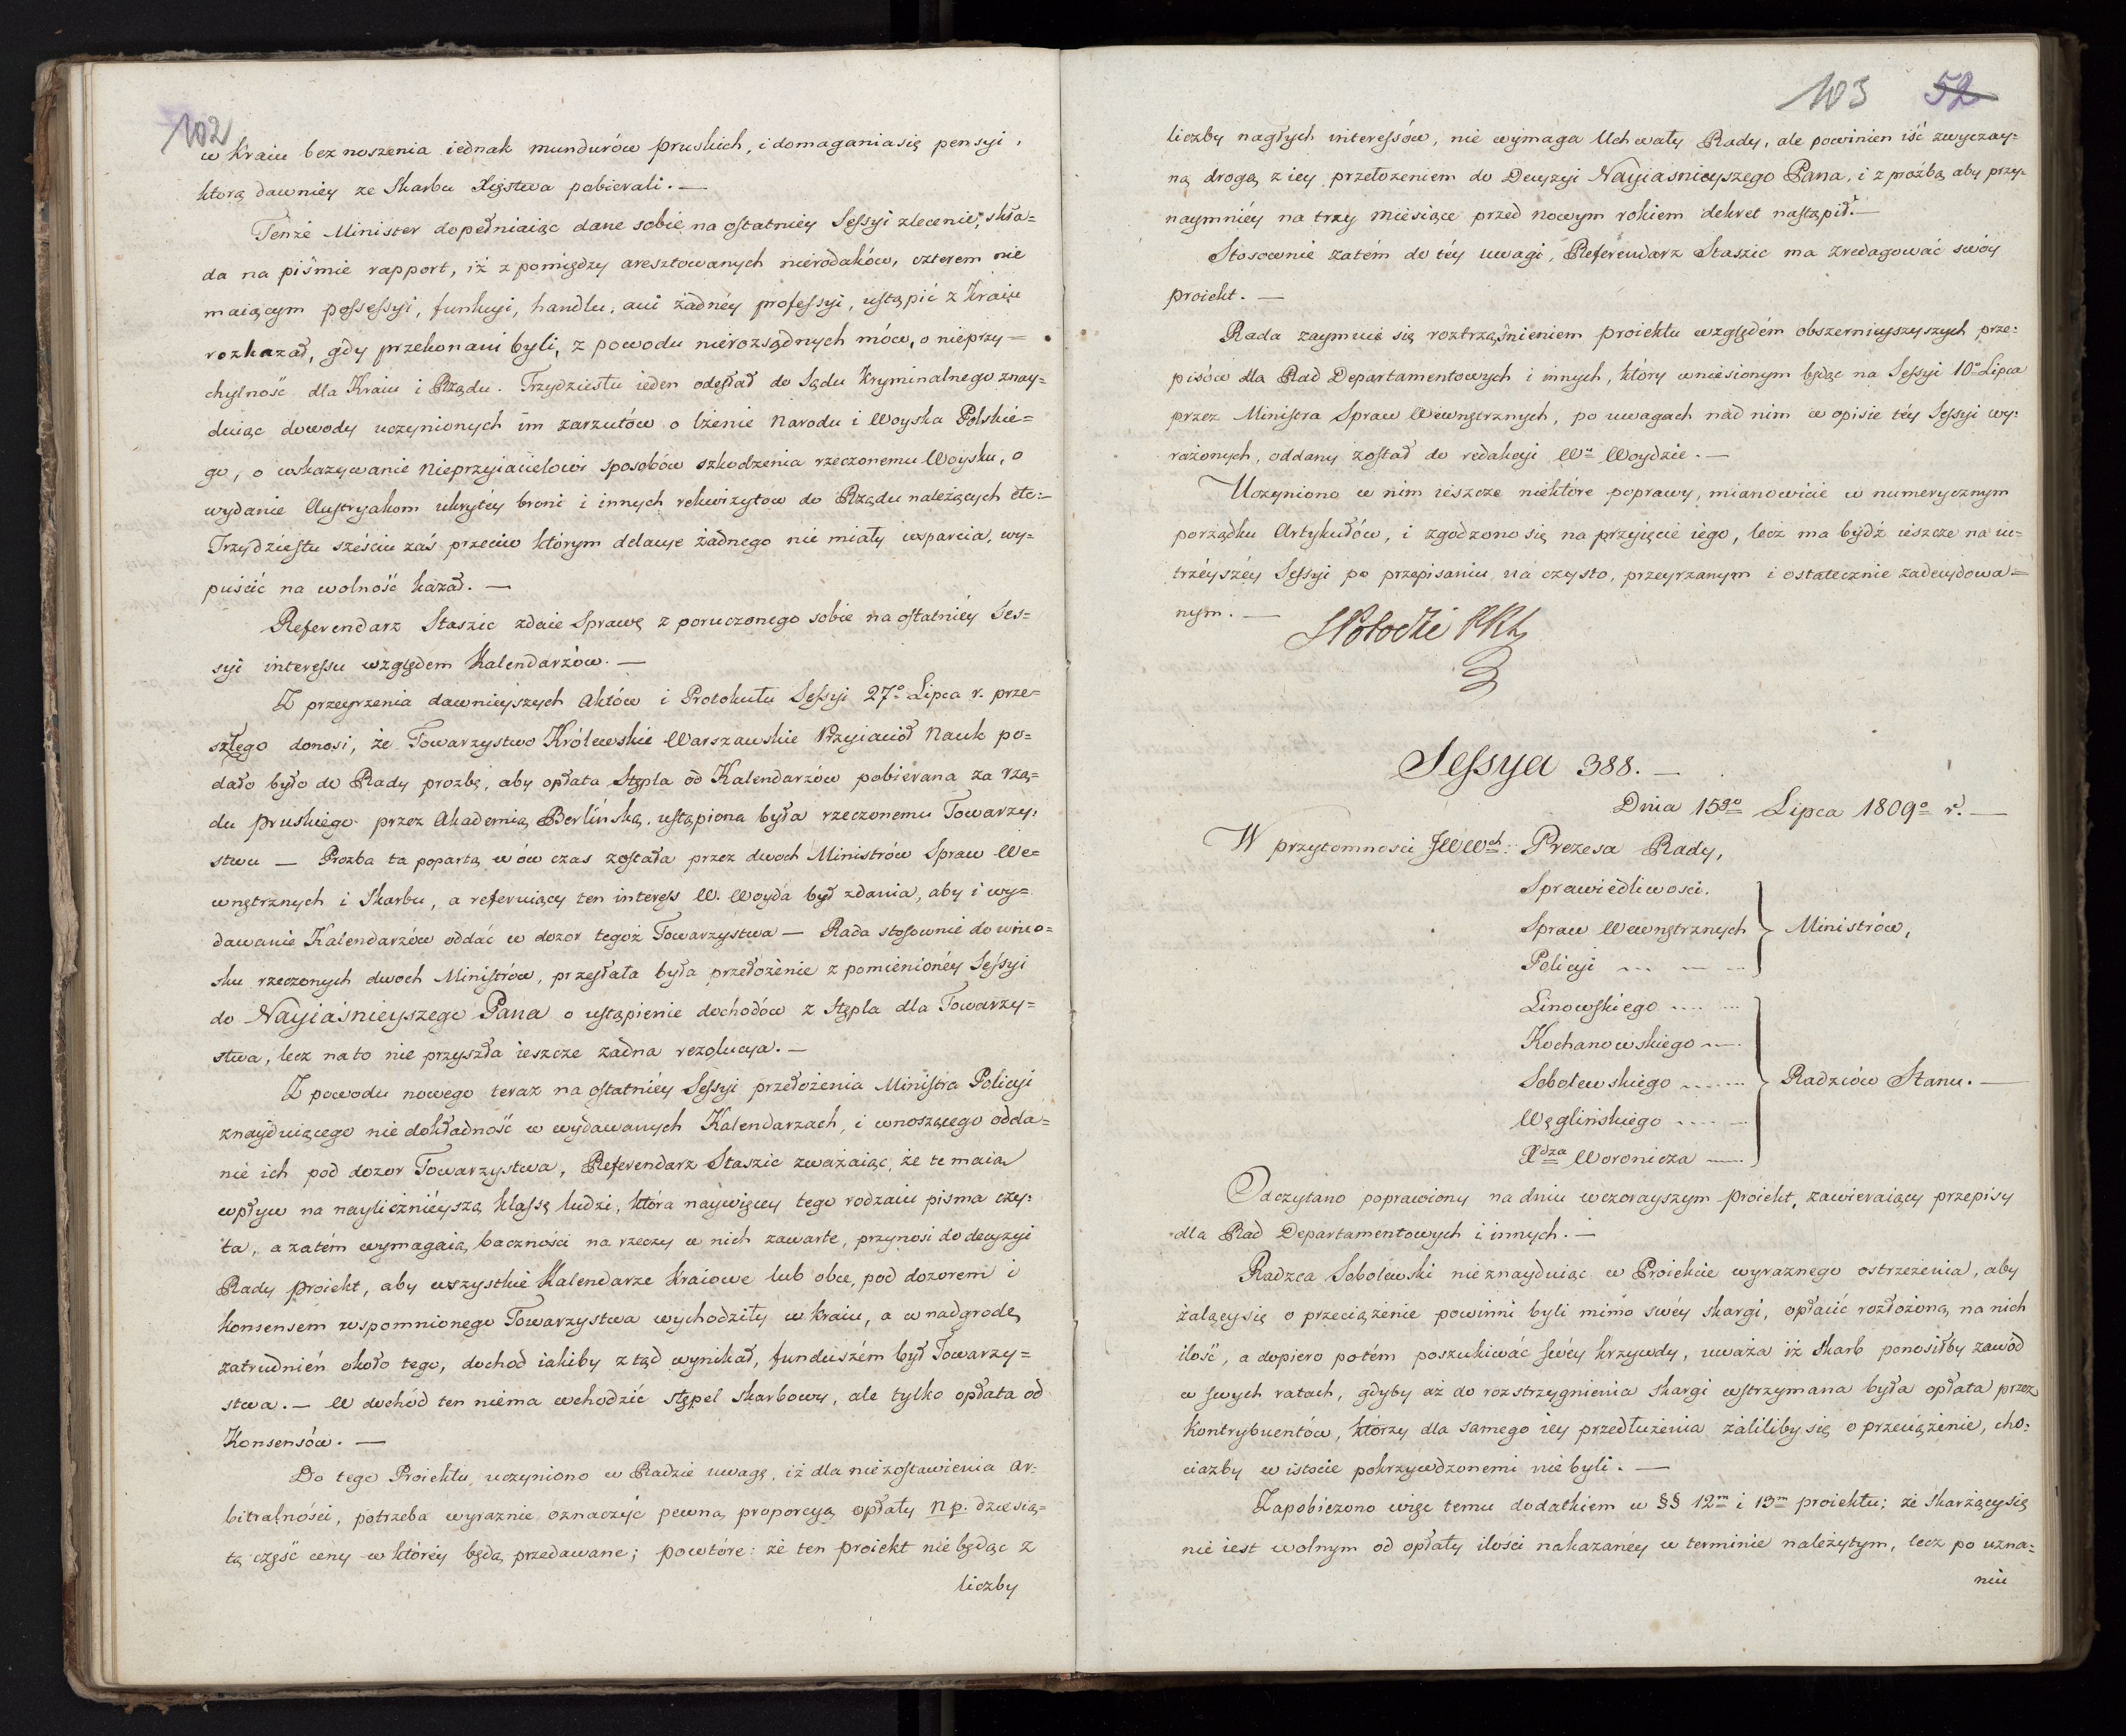 102
w kraiu bez noszenia iednak mundurów pruskich, i domagania się pensyi,
ktorą dawniey ze Skarbu Xięstwa pobierali. —
Tenże Minister dopełniaiąc dane sobie na ostatniey Sessyi zlecenie, skła=
da na piśmie rapport, iż z pomiędzy aresztowanych nierodaków, czterem nie
maiącym possessyi, funkcyi, handlu, ani żadnéy professyi, ustąpić z kraiu
rozkazał, gdy przekonani byli, z powodu nierozsądnych mów, o nieprzy=
chylność dla Kraiu i Rządu. Trzydziestu ieden odesłał do Sądu Kryminalnego znay=
duiąc dowody uczynionych im zarzutów o lżenie Narodu i Woyska Polskie=
go, o wskazywanie Nieprzyiacielowi sposobów szkodzenia rzeczonemu Woysku, o
wydanie Austryakom ukrytéy broni i innych rekwizytow do Rządu należących etc:—
Trzydziestu sześciu zaś przeciw którym delacye żadnego nie miały wsparcia, wy=
puścić na wolność kazał. —
Referendarz Staszic zdaie Sprawę z poruczonego sobie na ostatniéy Ses=
syi interessu względem Kalendarzów. —
Z przeyrzenia dawnieyszych Aktów i Protokułu Sessyi 27º Lipca r. prze=
szłego donosi, że Towarzystwo Królewskie Warszawskie Przyiaciół Nauk po=
dało było do Rady prozbę, aby opłata Stępla od Kalendarzów pobierana za rzą=
du pruskiego przez Akademią Berlińską, ustąpiona była rzeczonemu Towarzy=
stwu — Prozba ta popartą wów czas została przez dwoch Ministrów Spraw We=
wnętrznych i Skarbu, a referuiący ten interess W. Woyda był zdania, aby i wy=
dawanie Kalendarzów oddać w dozor tegoż Towarzystwa — Rada stosownie do wnio=
sku rzeczonych dwoch Ministrów, przesłała była przełożenie z pomienionéy Sessyi
do Nayiaśnieyszego Pana o ustąpienie dochodów z Stępla dla Towarzy=
stwa, lecz na to nie przyszła ieszcze żadna rezolucya. —
Z powodu nowego teraz na ostatniéy Sessyi przełożenia Ministra Policyi
znayduiącego niedokładność w wydawanych Kalendarzach, i wnoszącego odda=
nie ich pod dozor Towarzystwa, Referendarz Staszic zważaiąc, że te maią
wpływ na naylicznieyszą klassę ludzi, która naywięcey tego rodzaiu pisma czy=
ta, a zatém wymagaią baczności na rzeczy w nich zawarte, przynosi do decyzyi
Rady proiekt, aby wszystkie Kalendarze kraiowe lub obce, pod dozorem i
konsensem wspomnionego Towarzystwa wychodziły w kraiu, a w nadgrodę
zatrudnień około tego, dochod iakiby ztąd wynikał, funduszém był Towarzy=
stwa. — W dochód ten niema wchodzić stępel skarbowy, ale tylko opłata od
Konsensów. —
Do tego Proiektu uczyniono w Radzie uwagę, iż dla niezostawienia ar=
bitralności, potrzeba wyraznie oznaczyć pewną proporcyą opłaty np. dziesią=
tą część ceny w któréy będą przedawane; powtóre: że ten proiekt nie będąc z
liczby
103 52
liczby nagłych interessów, nie wymaga Uchwały Rady, ale powinien iść zwyczay=
ną drogą z iey przełożeniem do Decyzyi Nayiaśnieyszego Pana, i z prożbą aby przy=
naymniéy na trzy miesiące przed nowym rokiem dekret nastąpił. —
Stosownie zatém do téy uwagi, Referendarz Staszic ma zredagować swóy
proiekt. —
Rada zaymuie się roztrząśnieniem proiektu względém obszernieyszych prze=
pisów dla Rad Departamentowych i innych, który wniesionym będąc na Sessyi 10º Lipca
przez Ministra Spraw Wewnętrznych, po uwagach nad nim w opisie téy Sessyi wy=
rażonych, oddany został do redakcyi Wu Woydzie. —
Uczyniono w nim ieszcze niektóre poprawy, mianowicie w numerycznym
porządku Artykułów, i zgodzono się na przyięcie iego, lecz ma bydź ieszcze na iu=
trzéyszéy Sessyi po przepisaniu na czysto, przeyrzanym i ostatecznie zadecydowa=
nym. —
Sessya 388. —
Dnia 15go Lipca 1809º r. —
W przytomnosci JWWch: Prezesa Rady,
Sprawiedliwosci.
Spraw Wewnętrznych } Ministrów,
Policyi
Linowskiego
Kochanowskiego
Sobolewskiego } Radzców Stanu. —
Węglińskiego
Xdza Woronicza
Odczytano poprawiony na dniu wczorayszym proiekt, zawieraiący przepisy
dla Rad Departamentowych i innych. —
Radzca Sobolewski nieznayduiąc w Proiekcie wyraznego ostrzeżenia, aby
żalący się o przeciążenie powinni byli mimo swéy skargi, opłacić rozłożoną na nich
ilość, a dopiero potém poszukiwać swéy krzywdy, uważa iż Skarb ponosiłby zawód
w swych ratach, gdyby aż do rozstrzygnienia skargi wstrzymana była opłata przez
Kontrybuentów, którzy dla samego iéy przedłużenia żaliliby się o przeciążenie, cho=
ciażby w istocie pokrzywdzonemi nie byli. —
Zapobieżono więc temu dodatkiem w §§ 12m i 13m proiektu; że Skarżący się
nie iest wolnym od opłaty ilości nakazanéy w terminie należytym, lecz po uzna=
niu